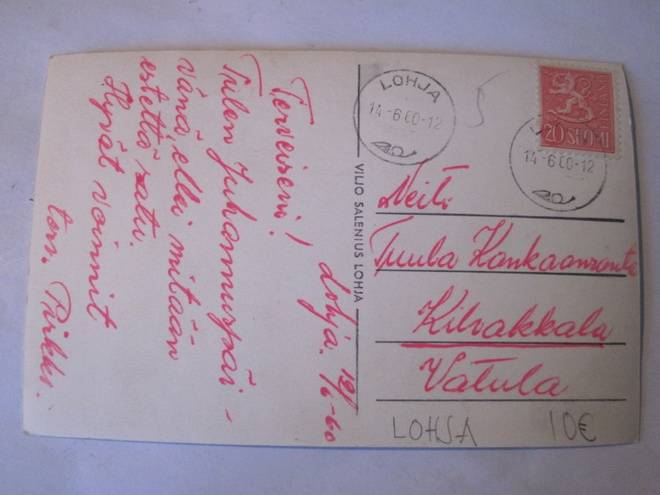 Lohja. 12/6-60
Terveiseni!
Tulen Juhannuspäi-
vänä, ellei mitään
estettä satu.
Hyvät voinnit
toiv. Pirkko.
VILJO SALENIUS LOHJA
LOHJA
14-6.60-12
20 SUOMI
14-6.60-12
Neiti
Tuula Kankaanranta
Kilvakkala
Vatula
LOHJA 10€